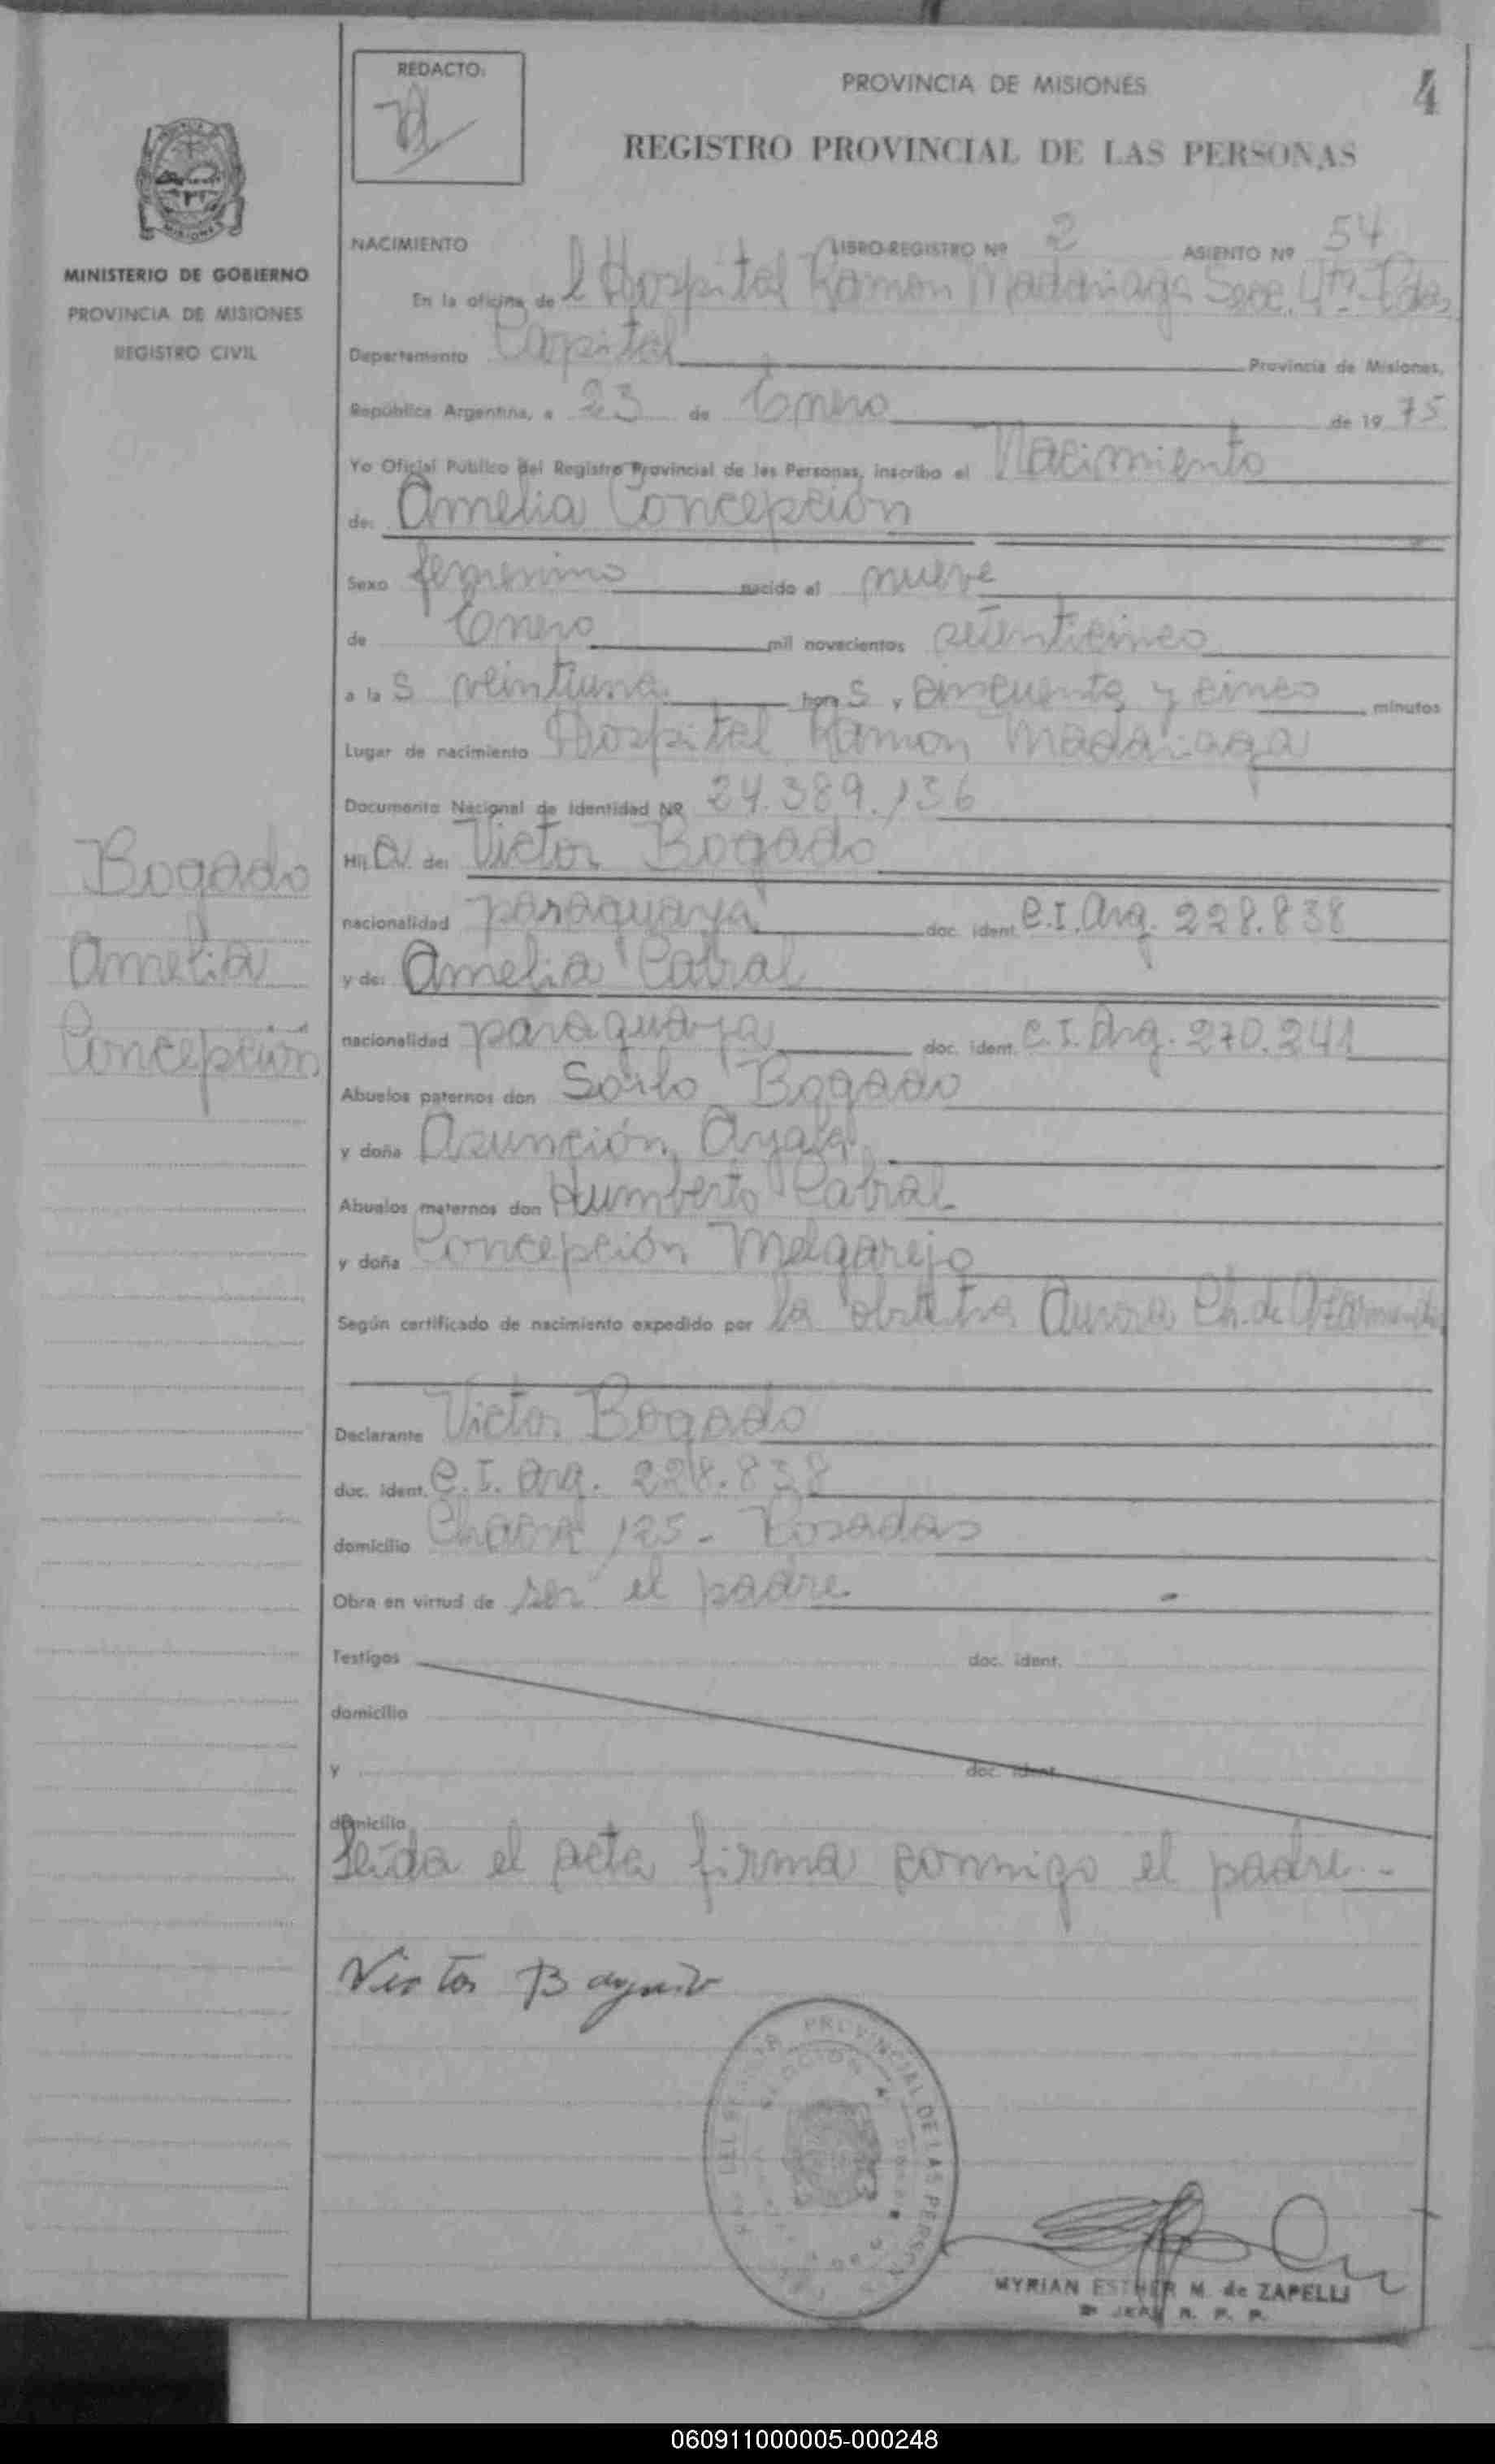 REDACTO:
PROVINCIA DE MISIONES
4
REGISTRO PROVINCIAL DE LAS PERSONAS
MINISTERIO DE GOBIERNO
PROVINCIA DE MISIONES
REGISTRO CIVIL
NACIMIENTO LIBRO-REGISTRO Nº 2 ASIENTO Nº 54
En la oficina de l Hospital Ramon Madariaga Secc. 4ta Pdas
Departamento Capital Provincia de Misiones,
República Argentina, a 23 de Enero de 1975
Yo Oficial Publico del Registro Provincial de las Personas, inscribo el Nacimiento
de: Amelia Concepción
Sexo femenino nacido el nueve
de Enero mil novecientos setenticinco
a las veintiuna horas, cincuenta y cinco minutos
Lugar de nacimiento Hospital Ramon Madariaga
Documento Nacional de Identidad Nº 24.389.136
Hija de: Victor Bogado
nacionalidad paraguaya doc. ident. C.I. Arg. 228.838
y de: Amelia Cabral
nacionalidad paraguaya doc. ident. C.I. Arg. 270.241
Abuelos paternos don Soilo Bogado
y doña Asunción Ayala
Abuelos maternos don Humberto Cabral
y doña Concepción Melgarejo
Según certificado de nacimiento expedido por la obstetra Aurora Ch. de
Declarante Victor Bogado
doc. ident. C.I. Arg. 228.838
domicilio Chacra 125 - Posadas
Obra en virtud de ser el padre
Testigos doc. ident.
domicilio
y doc. ident.
domicilio
Leída el acta firma conmigo el padre.-
Bogado
Amelia
Concepción
Victor Bogado
PROVINCIAL DE LAS PERSONAS
MYRIAN ESTHER M. de ZAPELLI
JEFE R. P. P.
060911000005-000248